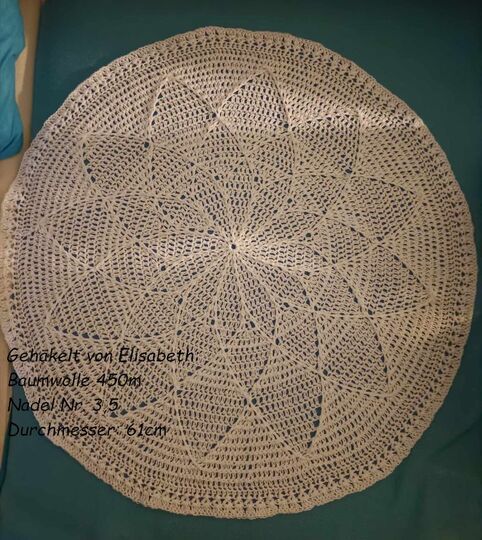 Gehäkelt von Elisabeth
Baumwolle 450m
Nadel Nr. 3,5
Durchmesser: 61cm